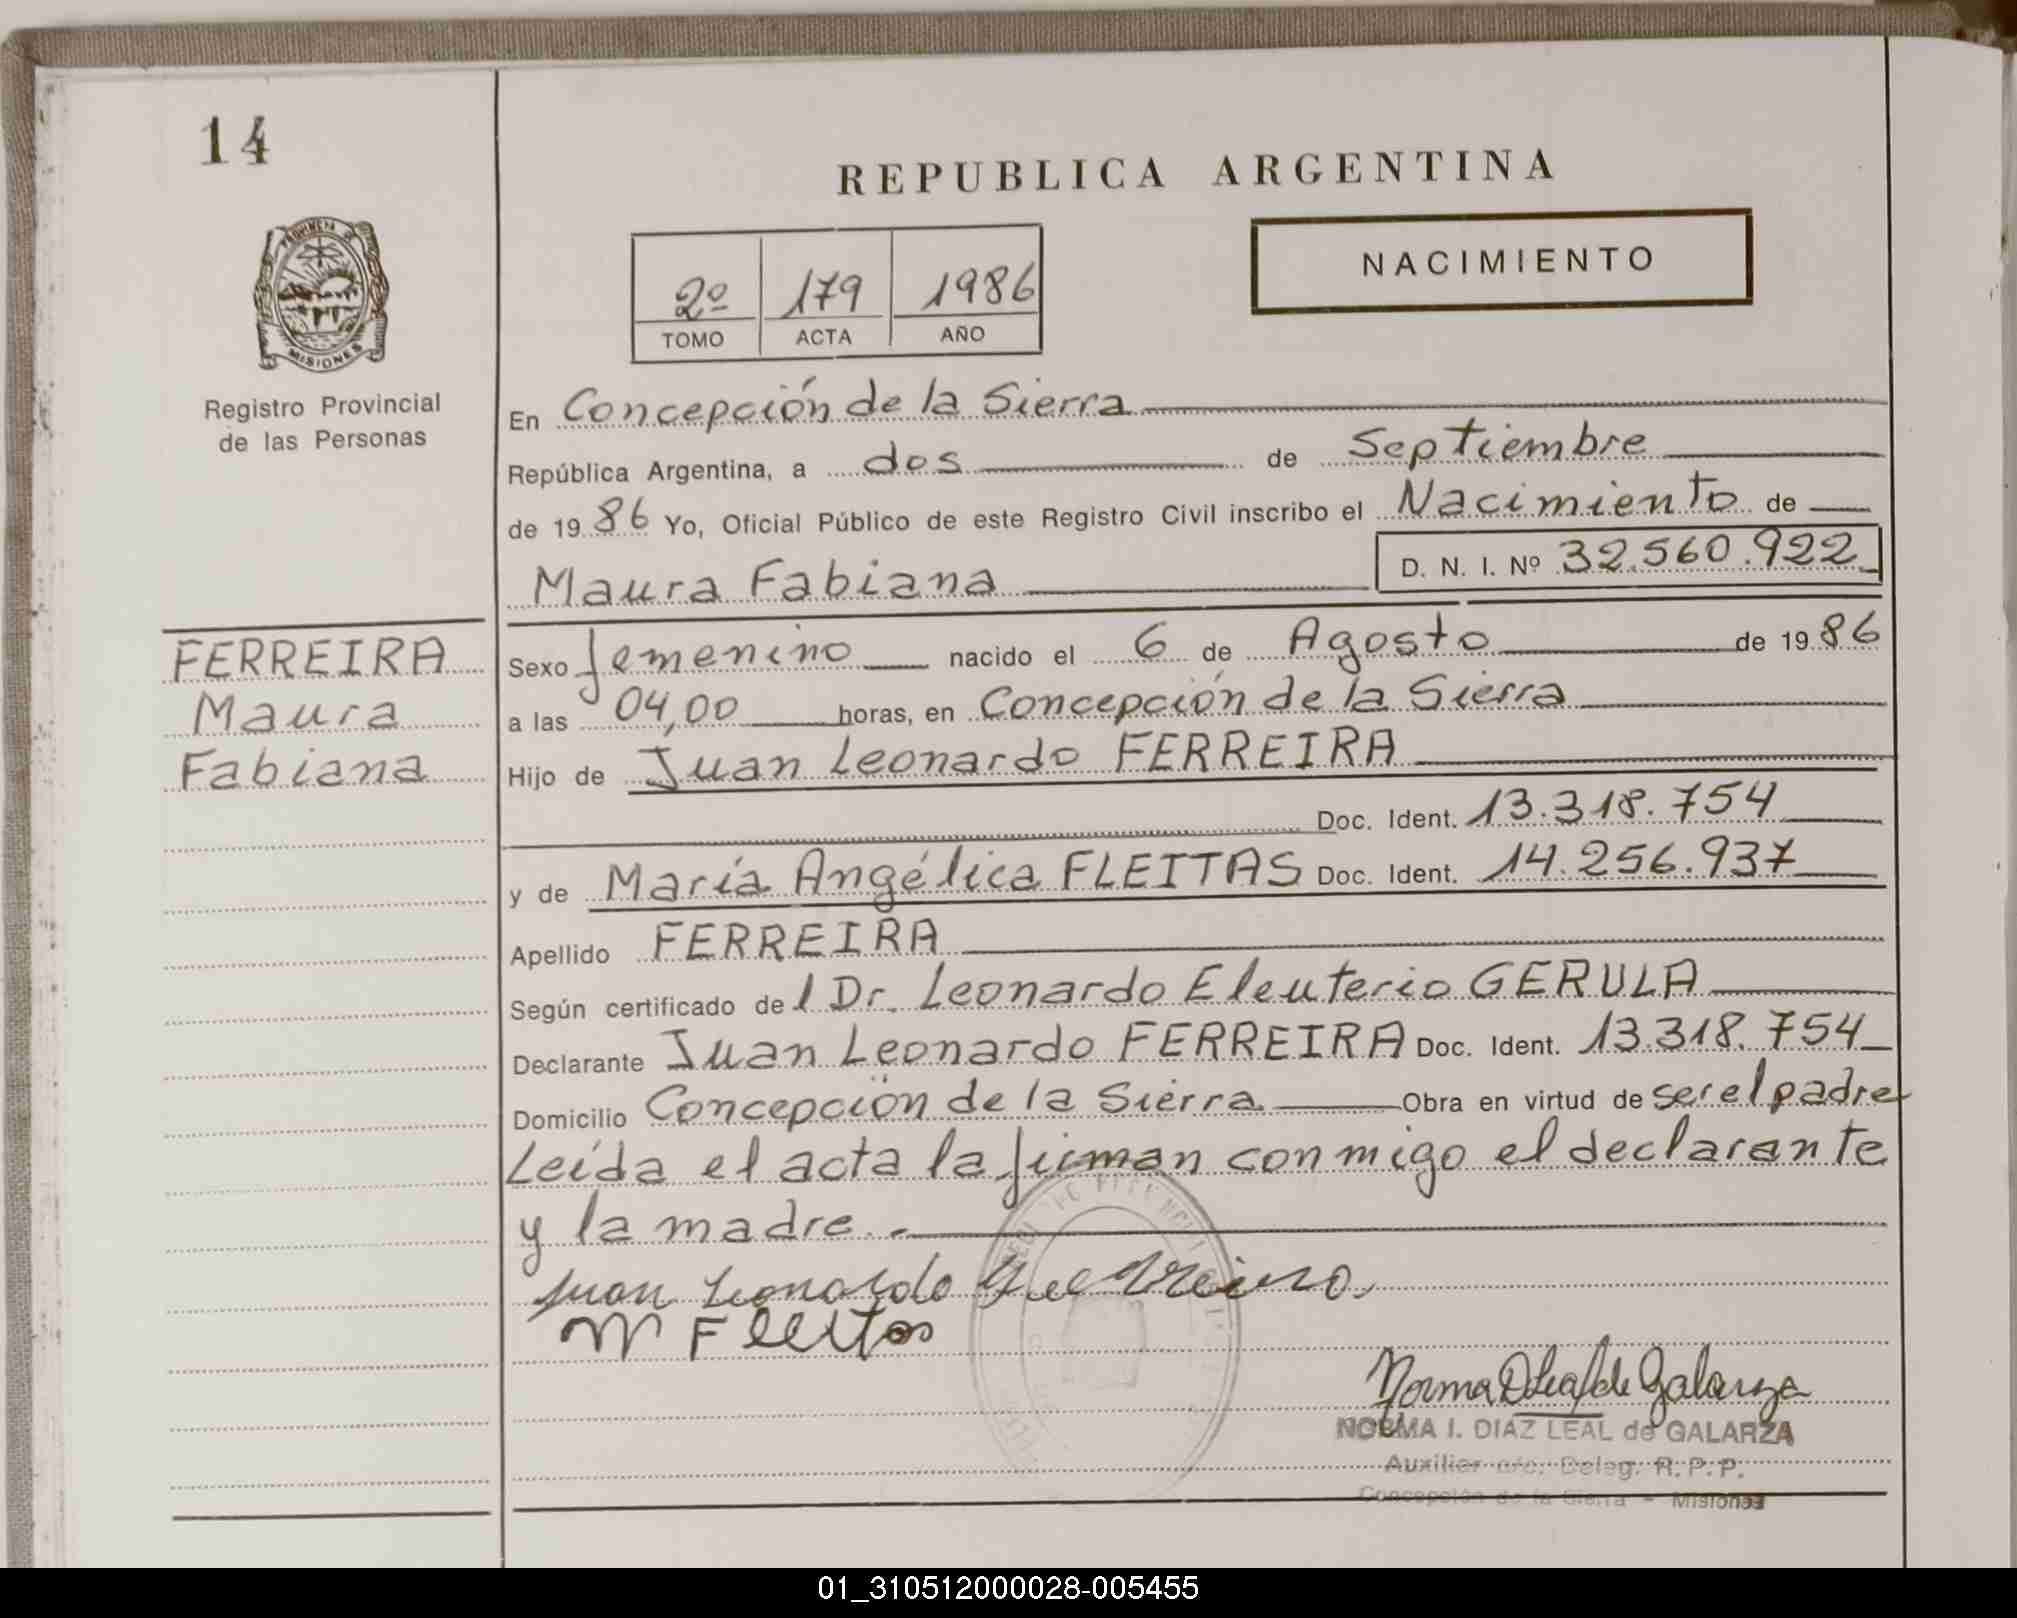 14
REPUBLICA ARGENTINA
NACIMIENTO
2º 179 1986
TOMO ACTA AÑO
PROVINCIA DE
MISIONES
Registro Provincial
de las Personas
En Concepción de la Sierra
República Argentina, a dos de Septiembre
de 1986 Yo, Oficial Público de este Registro Civil inscribo el Nacimiento de
Maura Fabiana D. N. I. Nº 32.560.922
FERREIRA
Maura
Fabiana
Sexo femenino nacido el 6 de Agosto de 1986
a las 04,00 horas, en Concepción de la Sierra
Hijo de Juan Leonardo FERREIRA
Doc. Ident. 13.318.754
y de María Angélica FLEITAS Doc. Ident. 14.256.937
Apellido FERREIRA
Según certificado del Dr. Leonardo Eleuterio GERULA
Declarante Juan Leonardo FERREIRA Doc. Ident. 13.318.754
Domicilio Concepción de la Sierra Obra en virtud de ser el padre
Leída el acta la firman conmigo el declarante
y la madre.-
Juan Leonardo
M Fleitas
Norma D Leal de Galarza
NORMA I. DIAZ LEAL de GALARZA
Auxiliar a/c. Deleg. R. P. P.
Concepción de la Sierra - Misiones
01_310512000028-005455